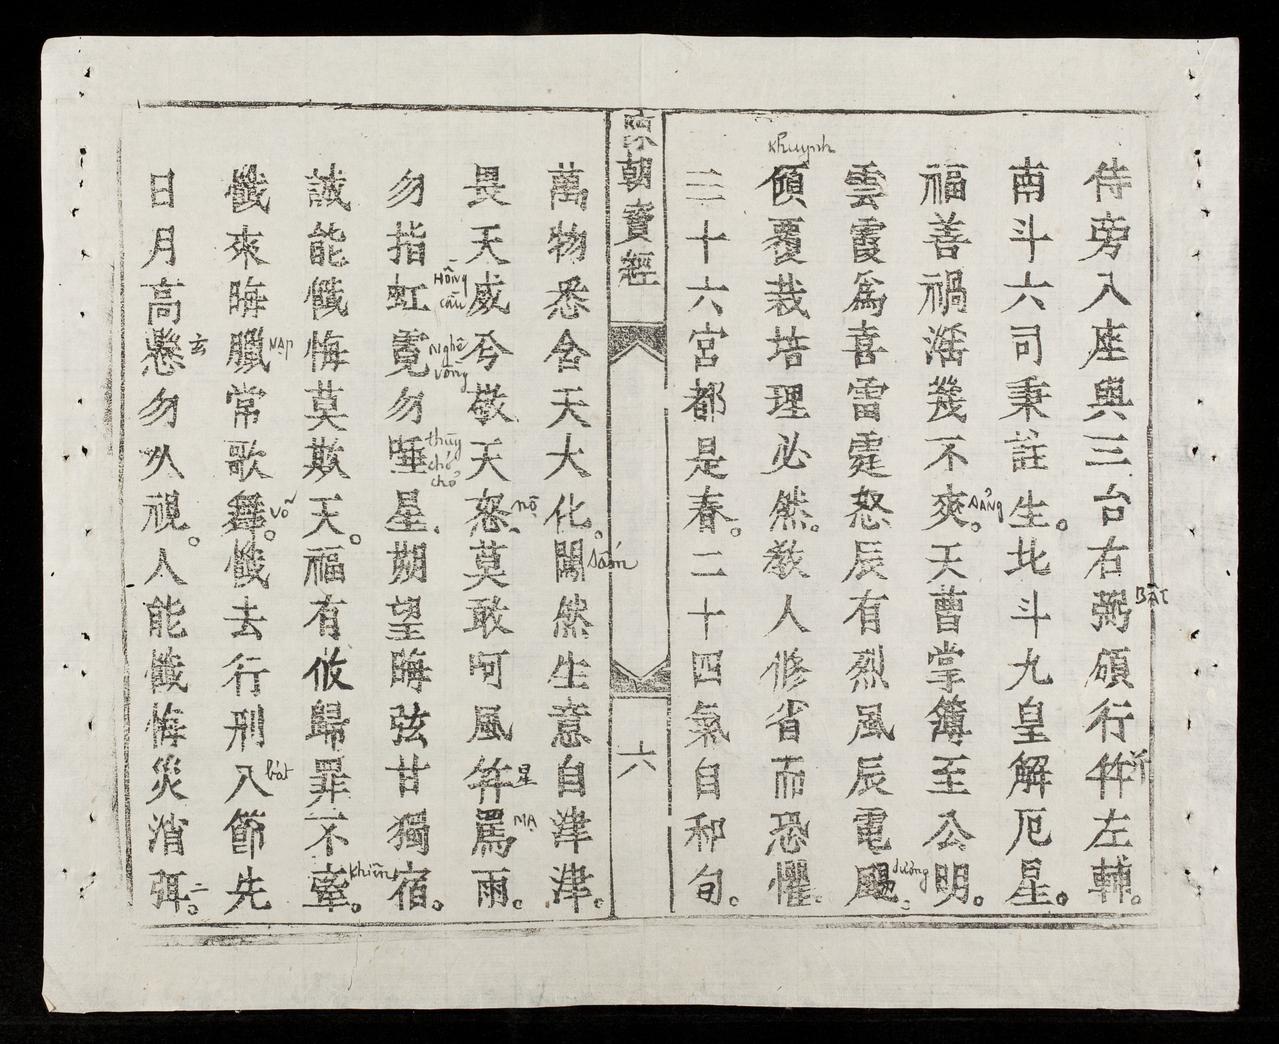 侍旁入座與三台右弼碩行𥫗左輔。
Bật
南斗六司秉註生。北斗九皇解厄星。
福善禍滛幾不爽。天曹掌簿至公明。
sảng
雲霞爲喜雷霆怒辰有烈風辰電颺。
dưỡng
傾覆栽培理必然。教人修省而恐懼。
Khuynh
三十六宮都是春。二十四氣自和旬。
朝賣經
六
萬物悉含天大化。闖然生意自津津。
Sấm
畏天威兮敬天怒。莫敢呵風𥫗罵雨。
nộ
MẠ
勿指虹霓勿唾星。朔望晦弦甘獨宿。
Hồng
Nghê
誠能懺悔莫欺天。福有攸歸罪不牽。
Khiên
懺來晦臘常歌舞。懺去行刑八節先
NẠP
Vỗ
bát
日月高懸勿久視。人能懺悔災消弭。
玄